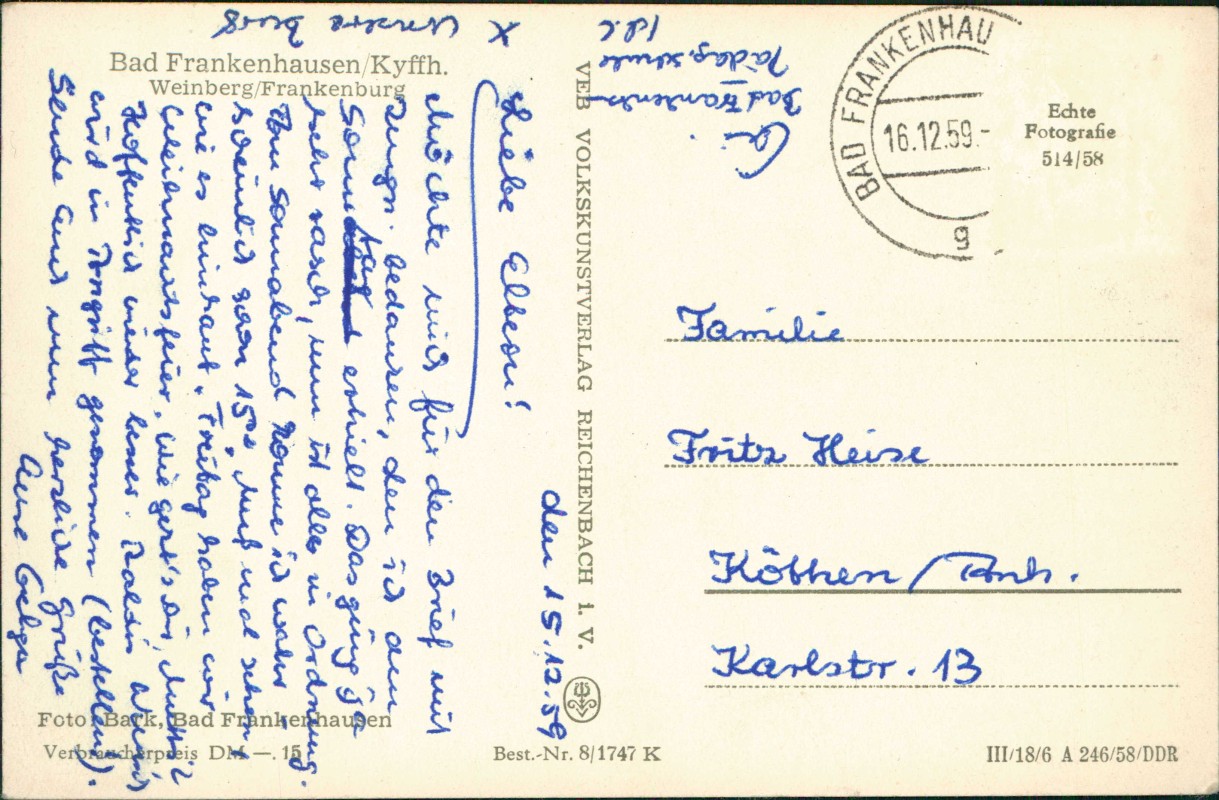 x unsere Burg
Bad Frankenhausen/Kyffh.
Weinberg/Frankenburg
den 15.12.59
Liebe Eltern!
Möchte mich für den Brief mit
bedanken, den ich am
Sonntag erhielt. Das ging ja
sehr rasch, nun ist alles in Ordnung.
Am Sonnabend komme ich wahr-
scheinlich schon 15 mal sehen
wie es hinhaut. Freitag haben wir
Weihnachtsfeier. Wie geht's Dir, Mutti?
Hoffentlich wieder besser.
wird in Angriff genommen (Bestellung).
Sende Euch nun herzliche Grüße
Eure
VEB VOLKSKUNSTVERLAG REICHENBACH i. V.
Pädag. Schule
Bad Frankenh.
BAD FRANKENHAU
16.12.59.-
g
Echte
Fotografie
514/58
Familie
Fritz Heise
Köthen / Anh.
Karlstr. 13
Foto: Bark, Bad Frankenhausen
Verbraucherpreis DM —. 15
Best.-Nr. 8/1747 K
III/18/6 A 246/58/DDR